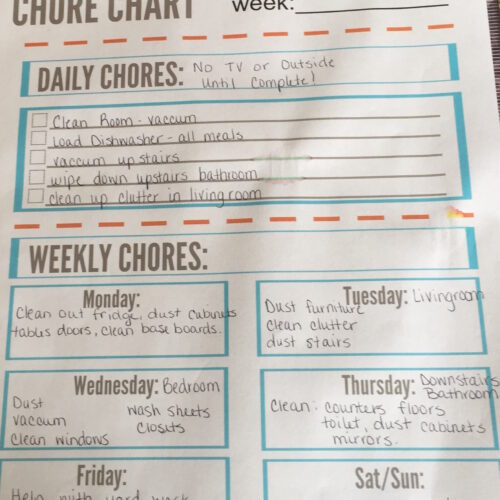 CHORE CHART
week:
DAILY CHORES: No TV or Outside
Until Complete!
Clean Room - vaccum
Load Dishwasher - all meals
vaccum upstairs
wipe down upstairs bathroom
clean up clutter in livingroom
WEEKLY CHORES:
Monday:
Clean out fridge, dust cabinets
tables doors, clean base boards.
Tuesday: Livingroom
Dust furniture
clean clutter
dust stairs
Wednesday: Bedroom
Dust
vaccum
clean windows
wash sheets
closits
Thursday: Downstairs
Bathroom
Clean: counters floors
toilet, dust cabinets
mirrors.
Friday:
Help with yard work
Sat/Sun: